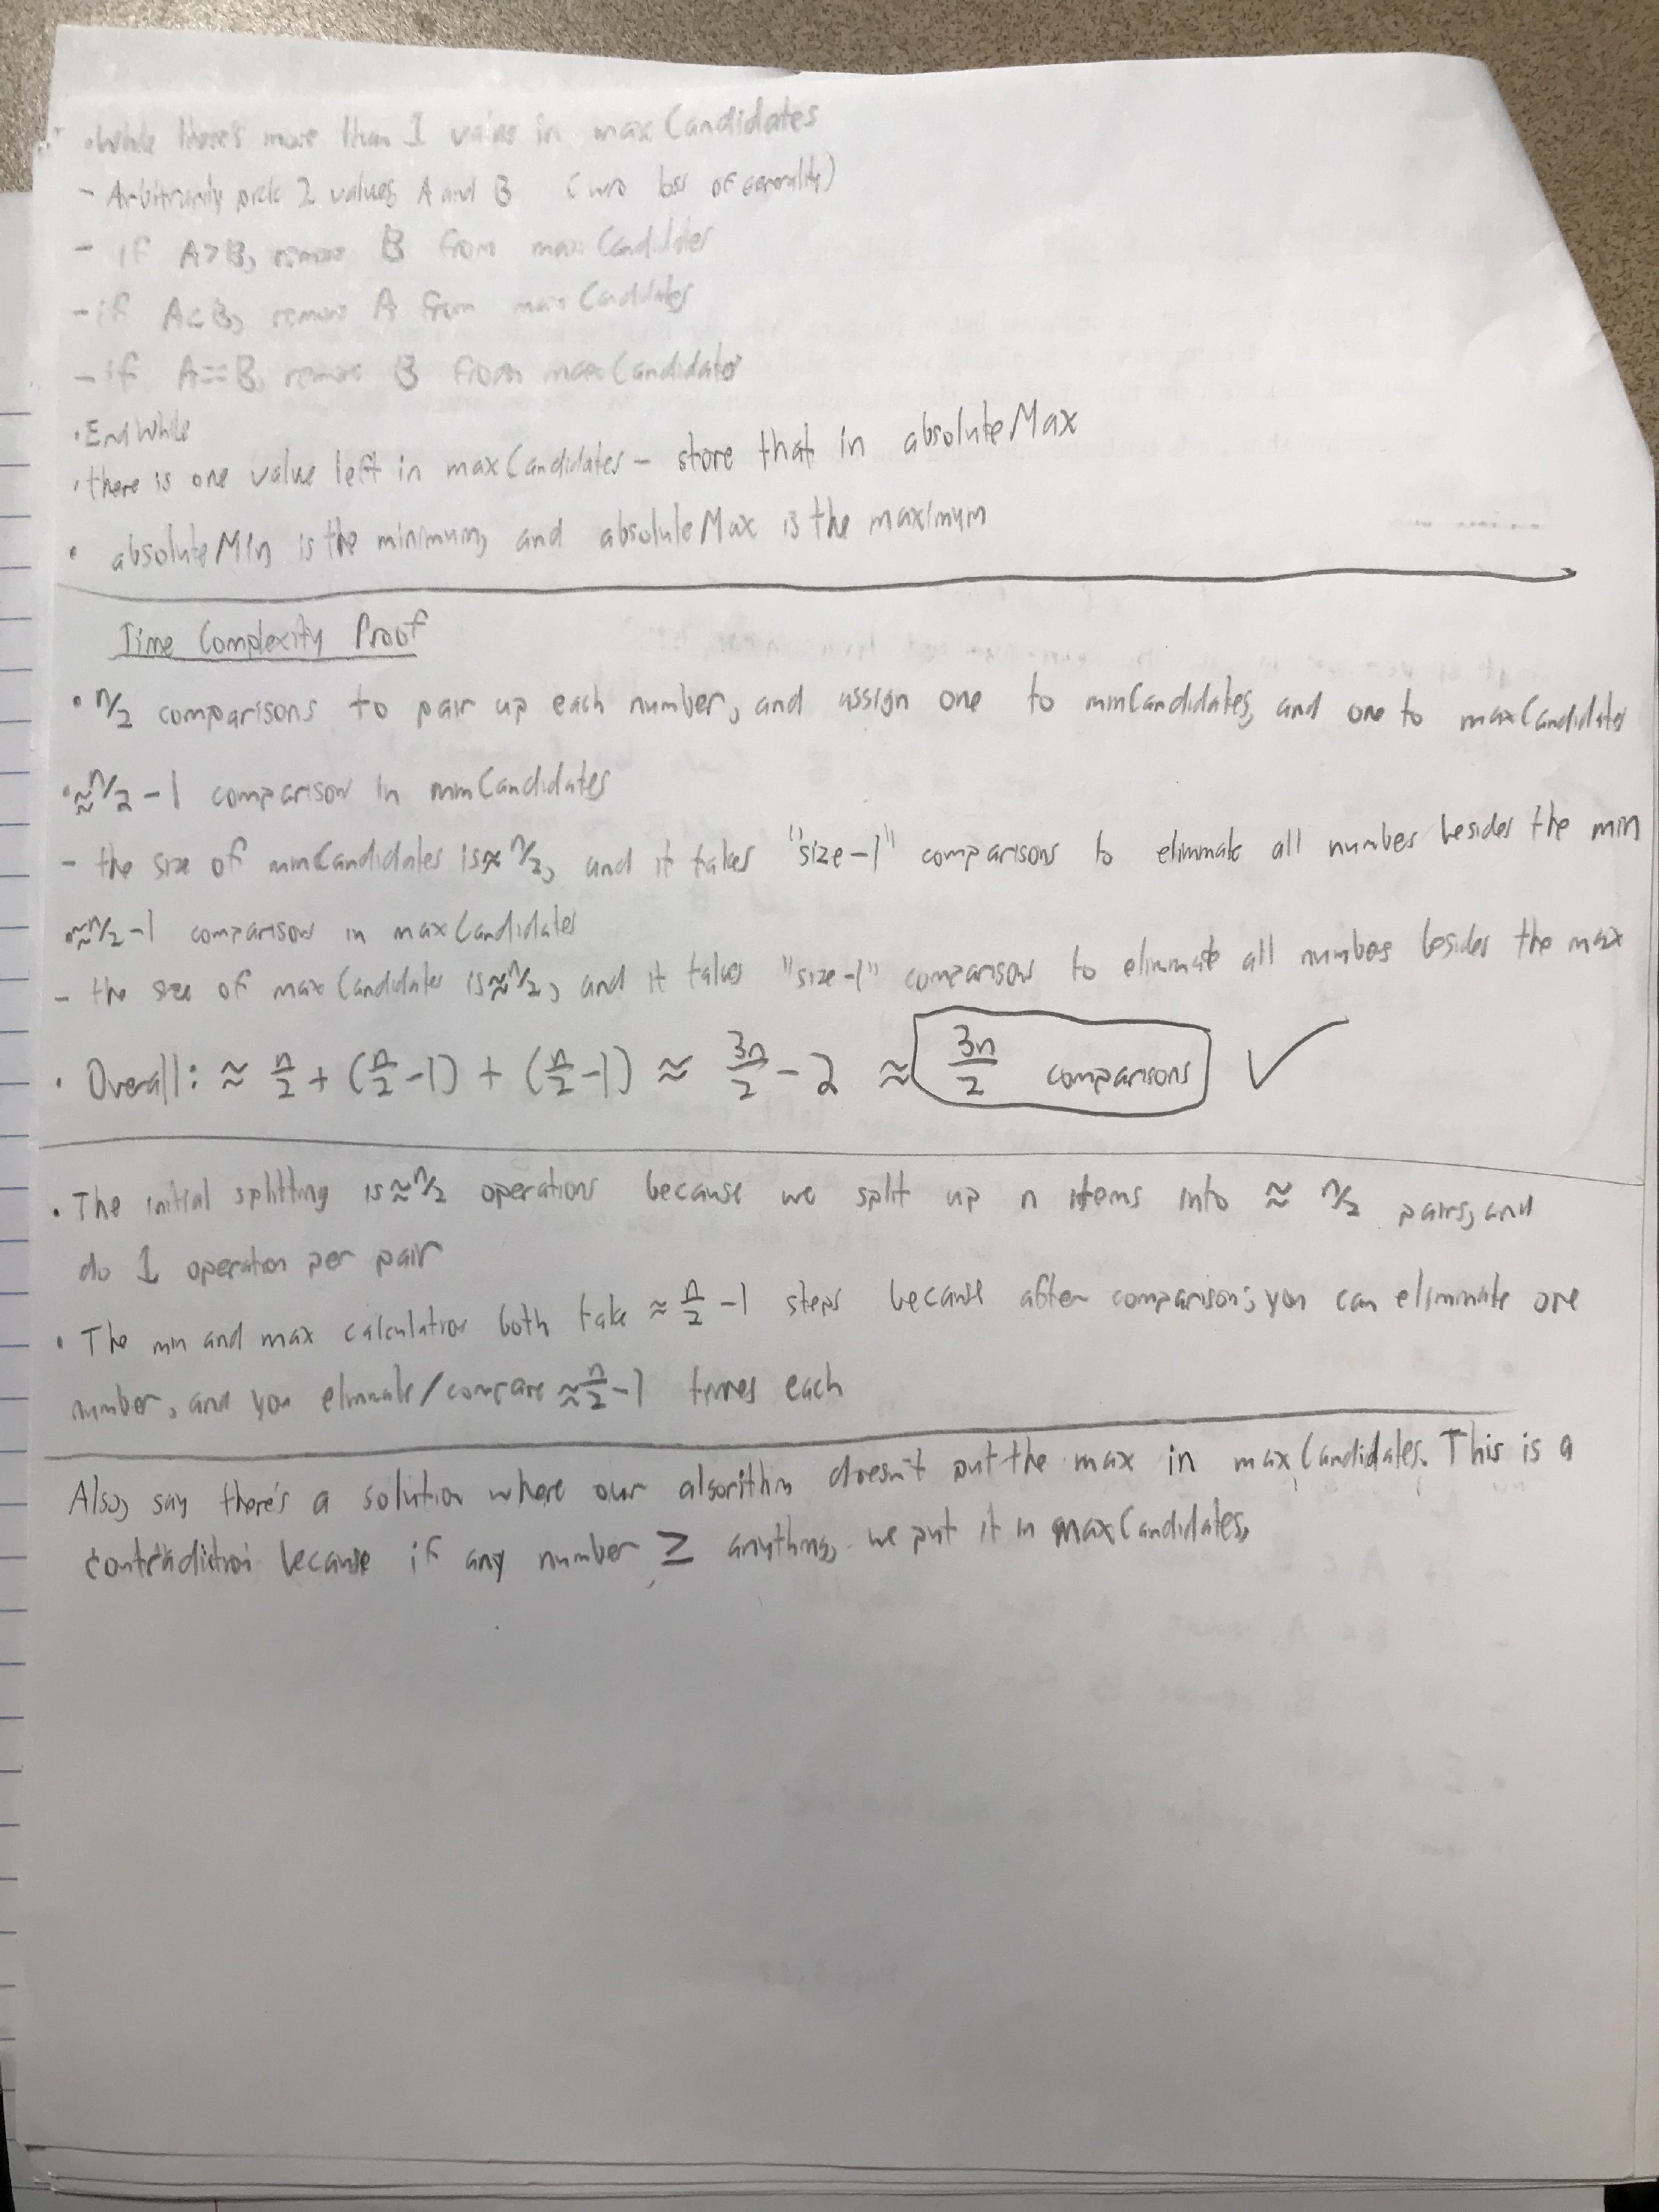 • While there's more than 1 value in maxCandidates
- Arbitrarily pick 2 values A and B (w/o loss of generality)
- if A>B, remove B from maxCandidates
- if A<B, remove A from maxCandidates
- if A==B, remove B from maxCandidates
• End While
• there is one value left in maxCandidates - store that in absoluteMax
• absoluteMin is the minimum, and absoluteMax is the maximum
Time Complexity Proof
• n/2 comparisons to pair up each number, and assign one to minCandidates, and one to maxCandidates
• ≈n/2 -1 comparisons in minCandidates
- the size of minCandidates is ≈ n/2, and it takes "size-1" comparisons to eliminate all numbers besides the min
• ≈n/2-1 comparisons in maxCandidates
- the size of maxCandidates is ≈n/2, and it takes "size-1" comparisons to eliminate all numbers besides the max
• Overall: ≈ n/2 + (n/2 -1) + (n/2 -1) ≈ 3n/2 - 2 ≈ 3n/2 comparisons ✓
• The initial splitting is ≈n/2 operations because we split up n items into ≈ n/2 pairs, and
do 1 operation per pair
• The min and max calculations both take ≈ n/2 -1 steps because after comparisons, you can eliminate one
number, and you eliminate/compare ≈n/2-1 times each
Also, say there's a solution where our algorithm doesn't put the max in maxCandidates. This is a
contradiction because if any number ≥ anything, we put it in maxCandidates.